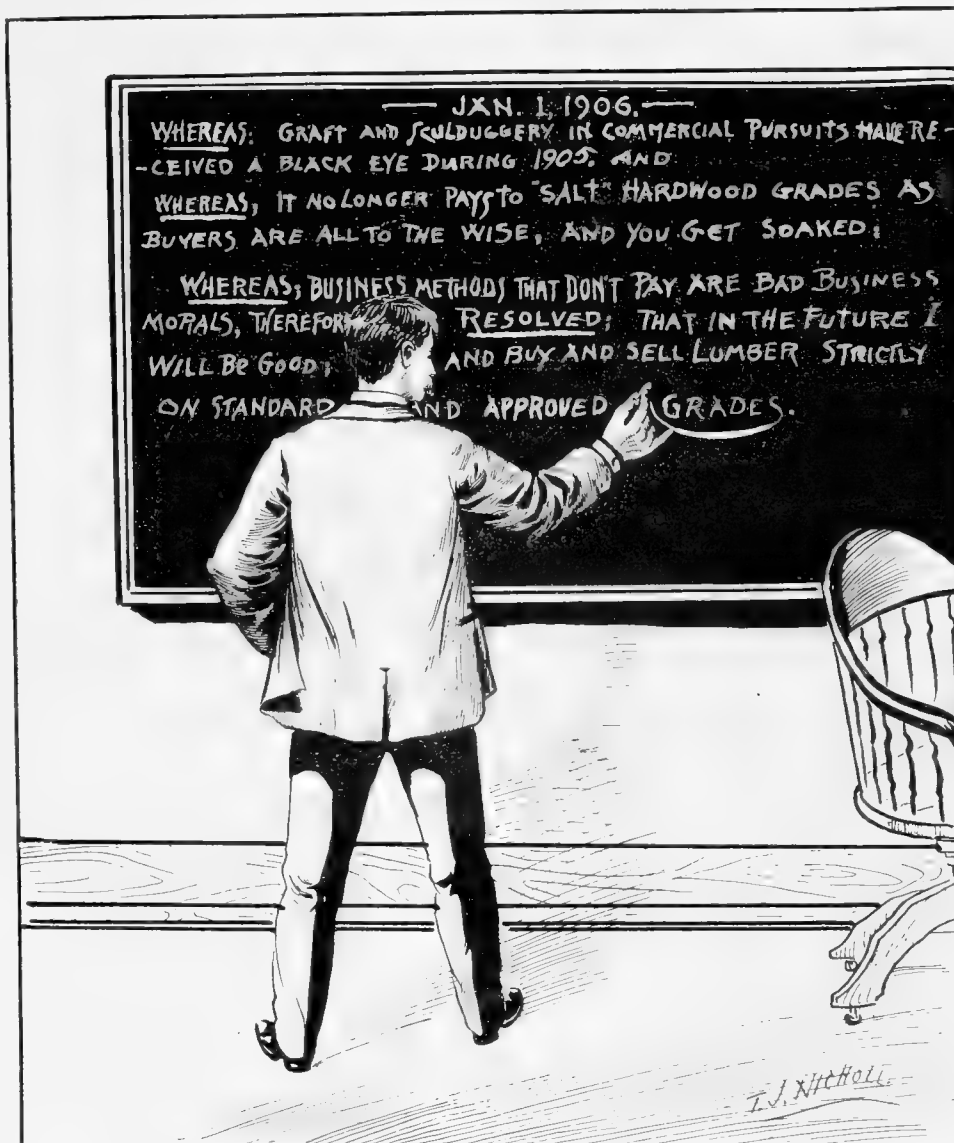 JAN. 1, 1906.
WHEREAS: GRAFT AND SCULDUGGERY IN COMMERCIAL PURSUITS HAVE RE-
-CEIVED A BLACK EYE DURING 1905. AND
WHEREAS, IT NO LONGER PAYS TO "SALT" HARDWOOD GRADES AS
BUYERS ARE ALL TO THE WISE, AND YOU GET SOAKED;
WHEREAS, BUSINESS METHODS THAT DON'T PAY ARE BAD BUSINESS
MORALS, THEREFOR RESOLVED; THAT IN THE FUTURE I
WILL BE GOOD; AND BUY AND SELL LUMBER STRICTLY
ON STANDARD AND APPROVED GRADES.
T.J. NICHOLL.